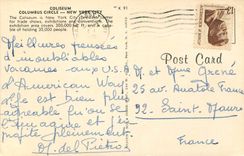 COLISEUM
COLUMBUS CIRCLE — NEW YORK CITY
The Coliseum is New York City's
for trade shows, exhibitions and conventions. The
exhibition area covers 300,000 sq. ft. and is capable
of holding 35,000 people.
Meilleures pensées
d'inoubliables
vacances aux U.S.A.
d'American Way
est bien plus
agréable qu'on se
l'imagine et j'en
profite pleinement
M. del Pietro
13
Post Card
M. et Mme
25, av. Anatole France
92- Saint Maur
France